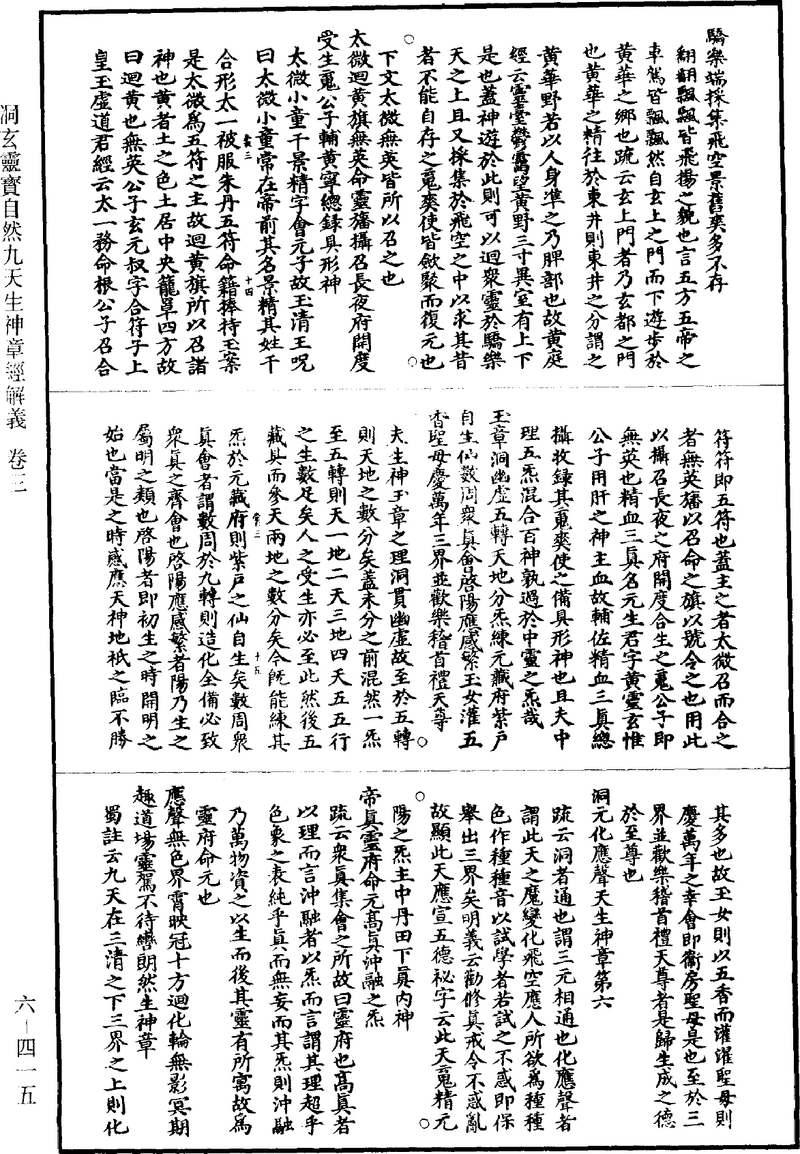 洞玄靈寶自然九天生神章經解義　卷三
六－四一五
驕樂端採集飛空景舊爽多不存
翩翩飄飄皆飛揚之貌也言五方五帝之
車駕皆飄飄然自玄上之門而下遊步於
黃華之鄉也疏云玄上門者乃玄都之門
也黃華之精往於東井則東井之分謂之
黃華野若以人身準之乃脾部也故黃庭
經云靈臺鬱靄望黃野三寸異室有上下
是也蓋神遊於此則可以迴衆靈於驕樂
天之上且又採集於飛空之中以求其昔
者不能自存之䰟爽使皆斂聚而復元也
下文太微無英皆所以召之也
太微迴黃旗無英命靈旛攝召長夜府開度
受生䰟公子輔黃寧總録具形神
太微小童干景精字會元子故玉清王呪
曰太微小童常在帝前其名景精其姓干
合形太一被服朱丹五符命籍捧持玉案
是太微爲五符之主故迴黃旗所以召諸
神也黃者土之色土居中央籠罩四方故
曰迴黃也無英公子玄元叔字合符子上
皇玉虛道君經云太一務命根公子召合
符符即五符也蓋主之者太微召而合之
者無英旛以召命之旗以號令之也用此
以攝召長夜之府開度合生之䰟公子即
無英也精血三眞名元生君字黃靈玄惟
公子用肝之神主血故輔佐精血三眞總
攝收録其䰟爽使之備具形神也且夫中
理五炁混合百神孰過於中靈之炁哉
玉章洞幽虛五轉天地分炁練元藏府紫户
自生仙數周衆眞會啓陽應感繁玉女灌五
香聖母慶萬年三界並歡樂稽首禮天尊
夫生神玉章之理洞貫幽虛故至於五轉
則天地之數分矣蓋未分之前混然一炁
至五轉則天一地二天三地四天五五行
之生數足矣人之受生亦必至此然後五
藏具而參天兩地之數分矣今既能練其
炁於元藏府則紫戸之仙自生矣數周衆
眞會者謂數周於九轉則造化全備必致
衆眞之齊會也啓陽應感繁者陽乃生之
屬明之類也啓陽者即初生之時開明之
始也當是之時感應天神地祇之臨不勝
其多也故玉女則以五香而灌濯聖母則
慶萬年之幸會即衞房聖母是也至於三
界並歡樂稽首禮天尊者是歸生成之德
於至尊也
洞元化應聲天生神章第六
疏云洞者通也謂三元相通也化應聲者
謂此天之魔變化飛空應人所欲爲種種
色作種種音以試學者若試之不惑即保
舉出三界矣明義云勸修眞戒令不惑亂
故顯此天應宣五德祕字云此天䰟精元
陽之炁主中丹田下眞内神
帝眞靈府命元高眞沖融之炁
疏云衆眞集會之所故曰靈府也高眞者
以理而言沖融者以炁而言謂其理超乎
色象之表純乎眞而無妄而其炁則沖融
乃萬物資之以生而後其靈有所寓故爲
靈府命元也
應聲無色界霄映冠十方迴化輪無影冥期
趣道場靈駕不待轡朗然生神章
蜀註云九天在三清之下三界之上則化